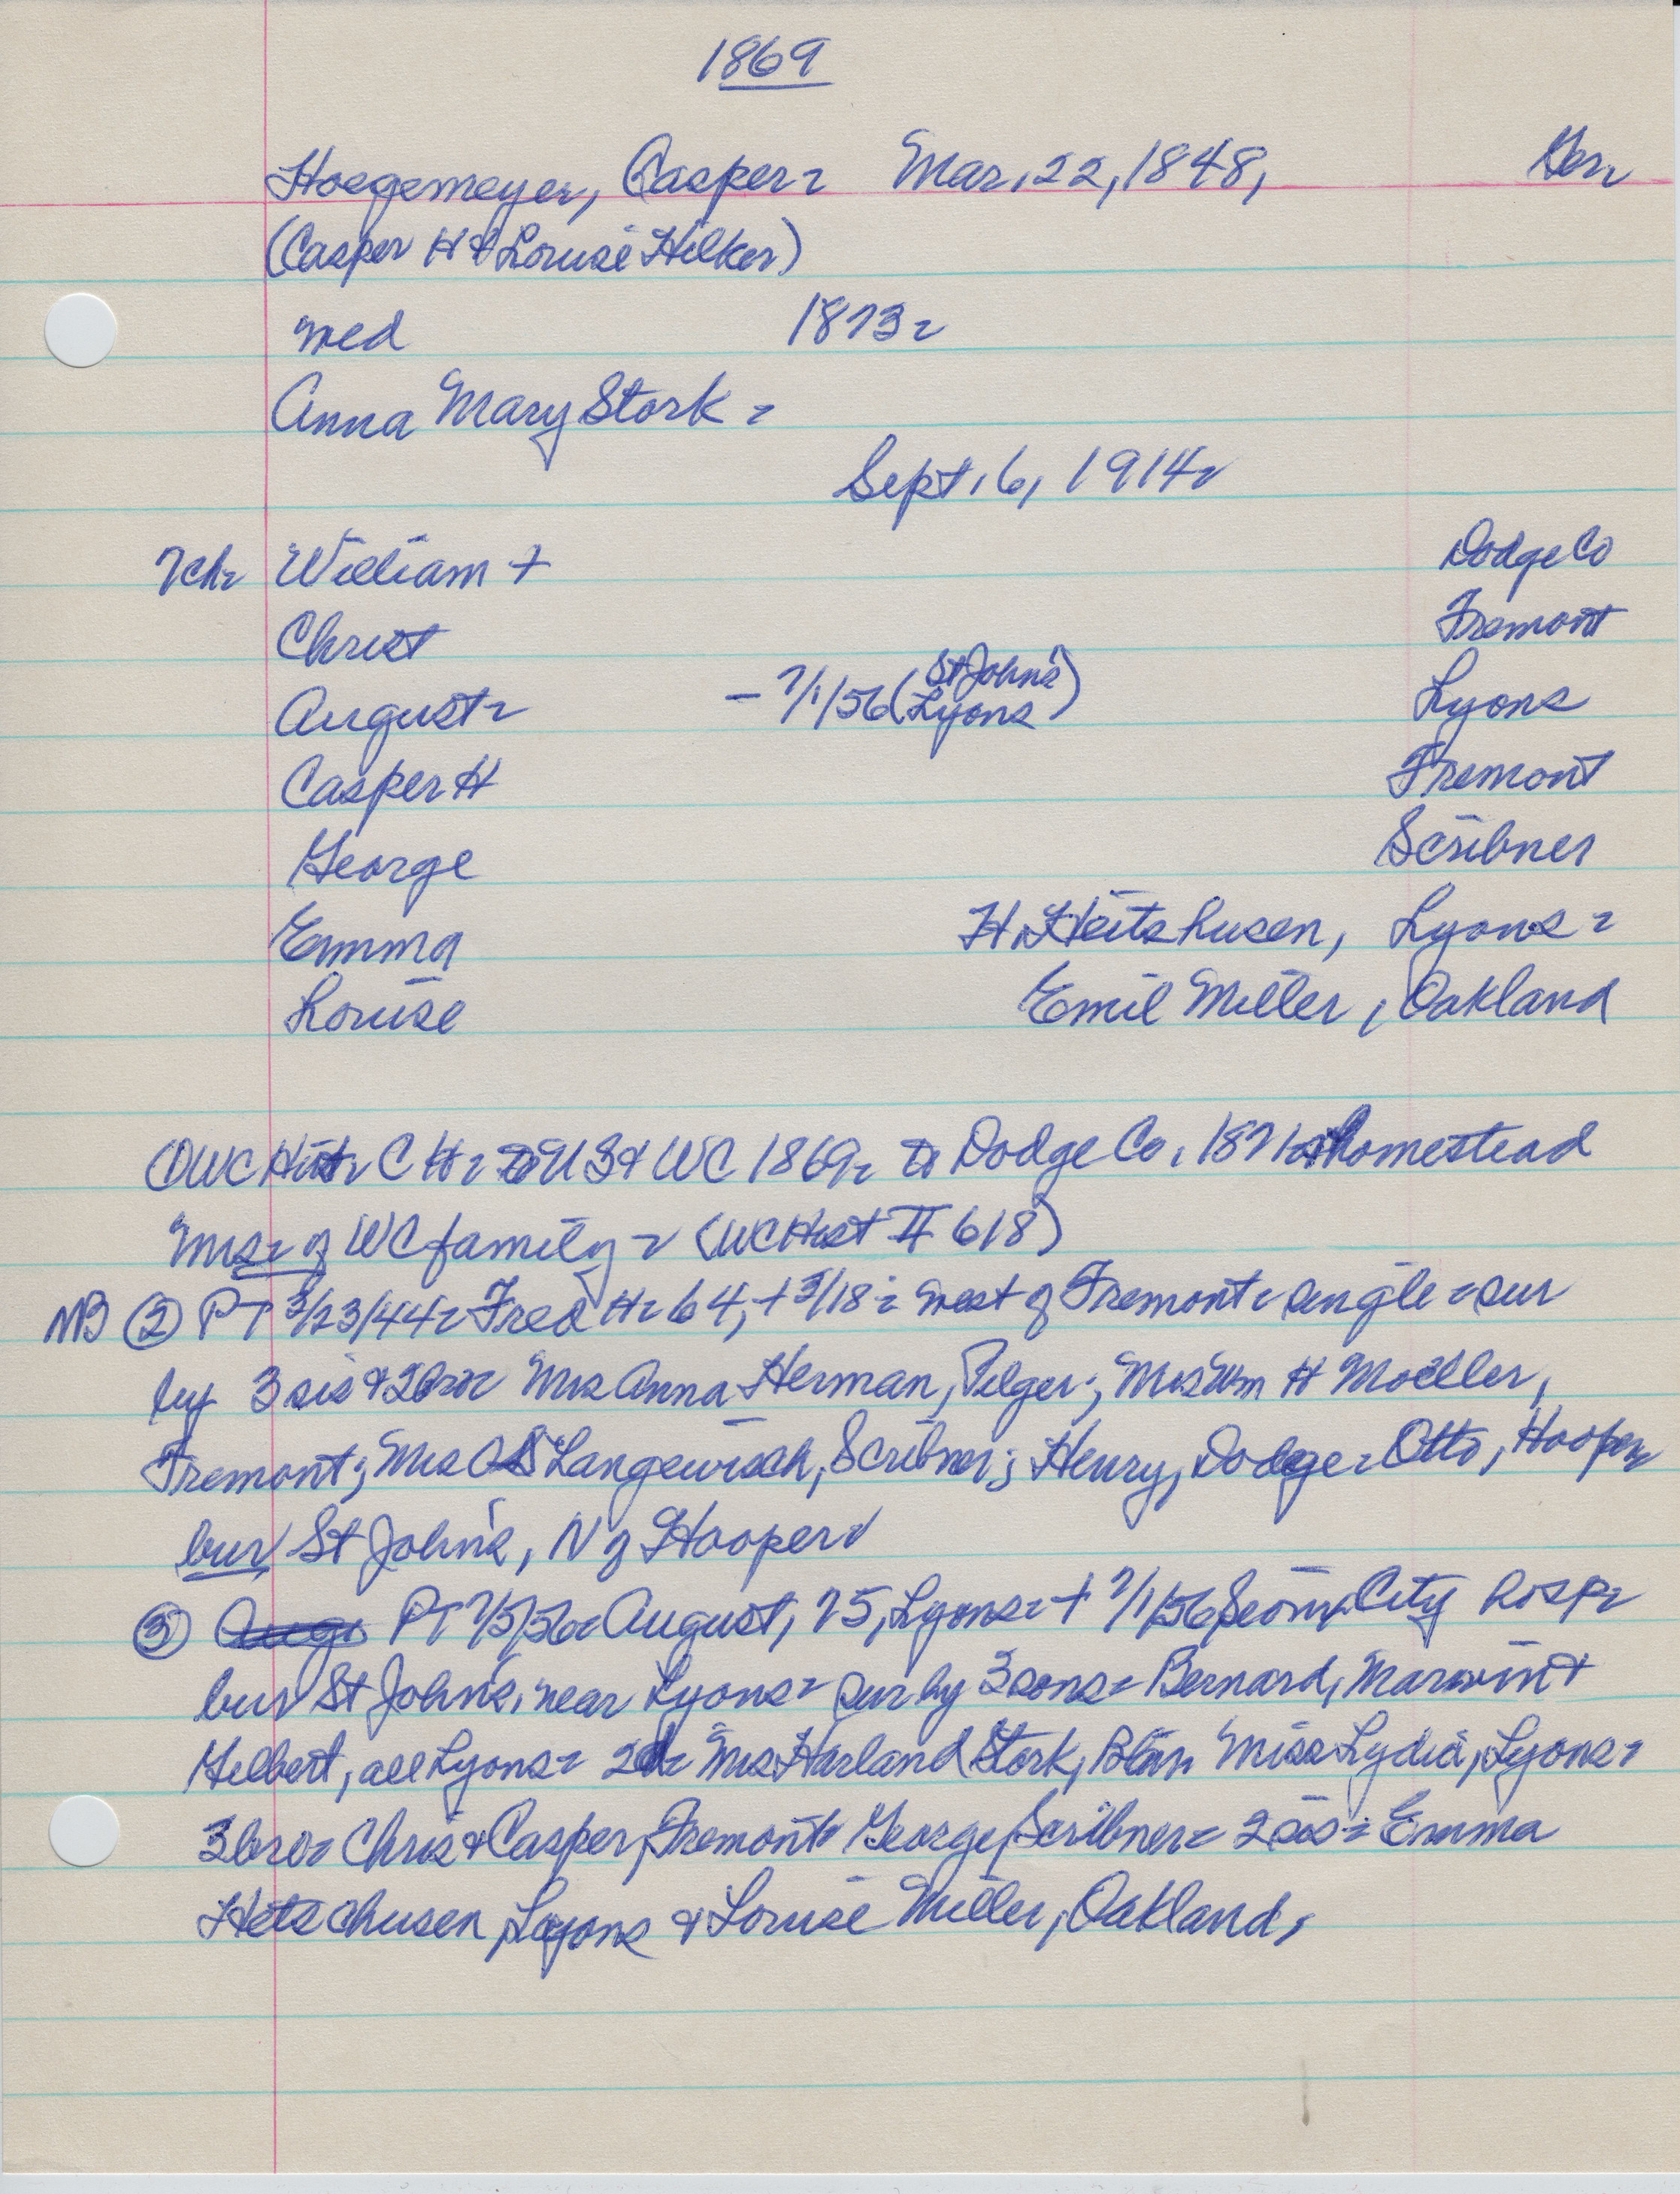 1869
Hoegemeyer, Casper- Mar. 22, 1848, Ger-
(Casper H & Louise Hilker)
med 1873-
Anna Mary Stork-
Sept. 6, 1914-
7ch- William + Dodge Co
Christ Fremont
August- - 7/1/56 (St John's Lyons) Lyons
Casper H Fremont
George Scribner
Emma H. Heitshusen, Lyons-
Louise Emil Miller, Oakland
① WC Hist- C H- to US & WC 1869- to Dodge Co. 1871 homestead
Mrs- of WC family- (WC Hist II 618)
NB ② PT 3/23/44- Fred H- 64, + 3/18- west of Fremont- single- sur
by 3 sis & 2 bro- Mrs Anna Herman, Pilger; Mrs Wm H Moeller,
Fremont; Mrs Langewisch, Scribner; Henry, Dodge- Otto, Hooper
bur St John's, N of Hooper-
③ PT 7/5/56- August, 75, Lyons- + 7/1/56 Sioux City hosp-
bur St John's, near Lyons- sur by 3 sons- Bernard, Marvin +
Gilbert, all Lyons- 2 d- Mrs Harland Stork, Blair Miss Lydia, Lyons-
3 bro- Chris & Casper, Fremont- George, Scribner- 2 sis- Emma
Hetschusen, Lyons & Louise Miller, Oakland,